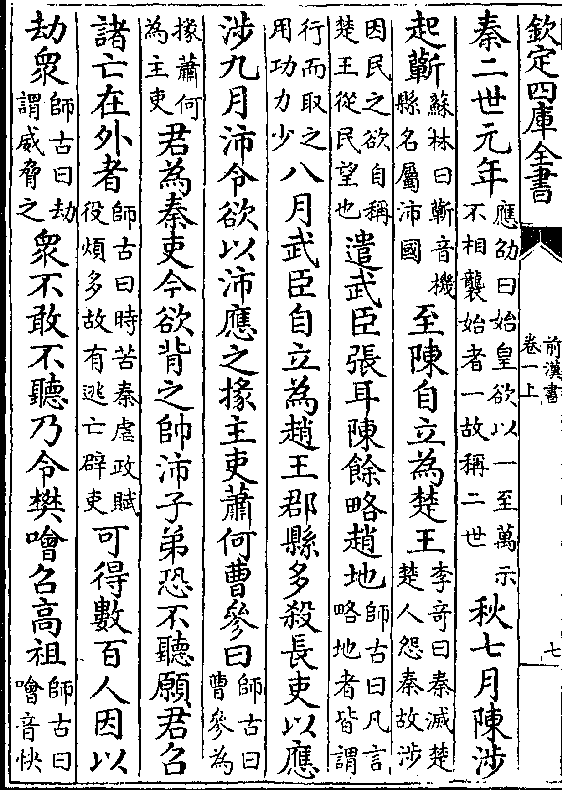 欽定四庫全書
前漢書
卷一上
七
秦二世元年應劭曰始皇欲以一至萬示不相襲始者一故稱二世秋七月陳涉
起蘄蘇林曰蘄音機縣名屬沛國至陳自立為楚王李奇曰秦滅楚楚人怨秦故涉
因民之欲自稱楚王從民望也遣武臣張耳陳餘略趙地師古曰凡言略地者皆謂
行而取之用功力少八月武臣自立為趙王郡縣多殺長吏以應
涉九月沛令欲以沛應之掾主吏蕭何曹參曰師古曰曹參為
掾蕭何為主吏君為秦吏今欲背之帥沛子弟恐不聽願君召
諸亡在外者師古曰時苦秦虐政賦役煩多故有逃亡辟吏可得數百人因以
劫衆師古曰劫謂威脅之衆不敢不聽乃令樊噲召高祖師古曰噲音快